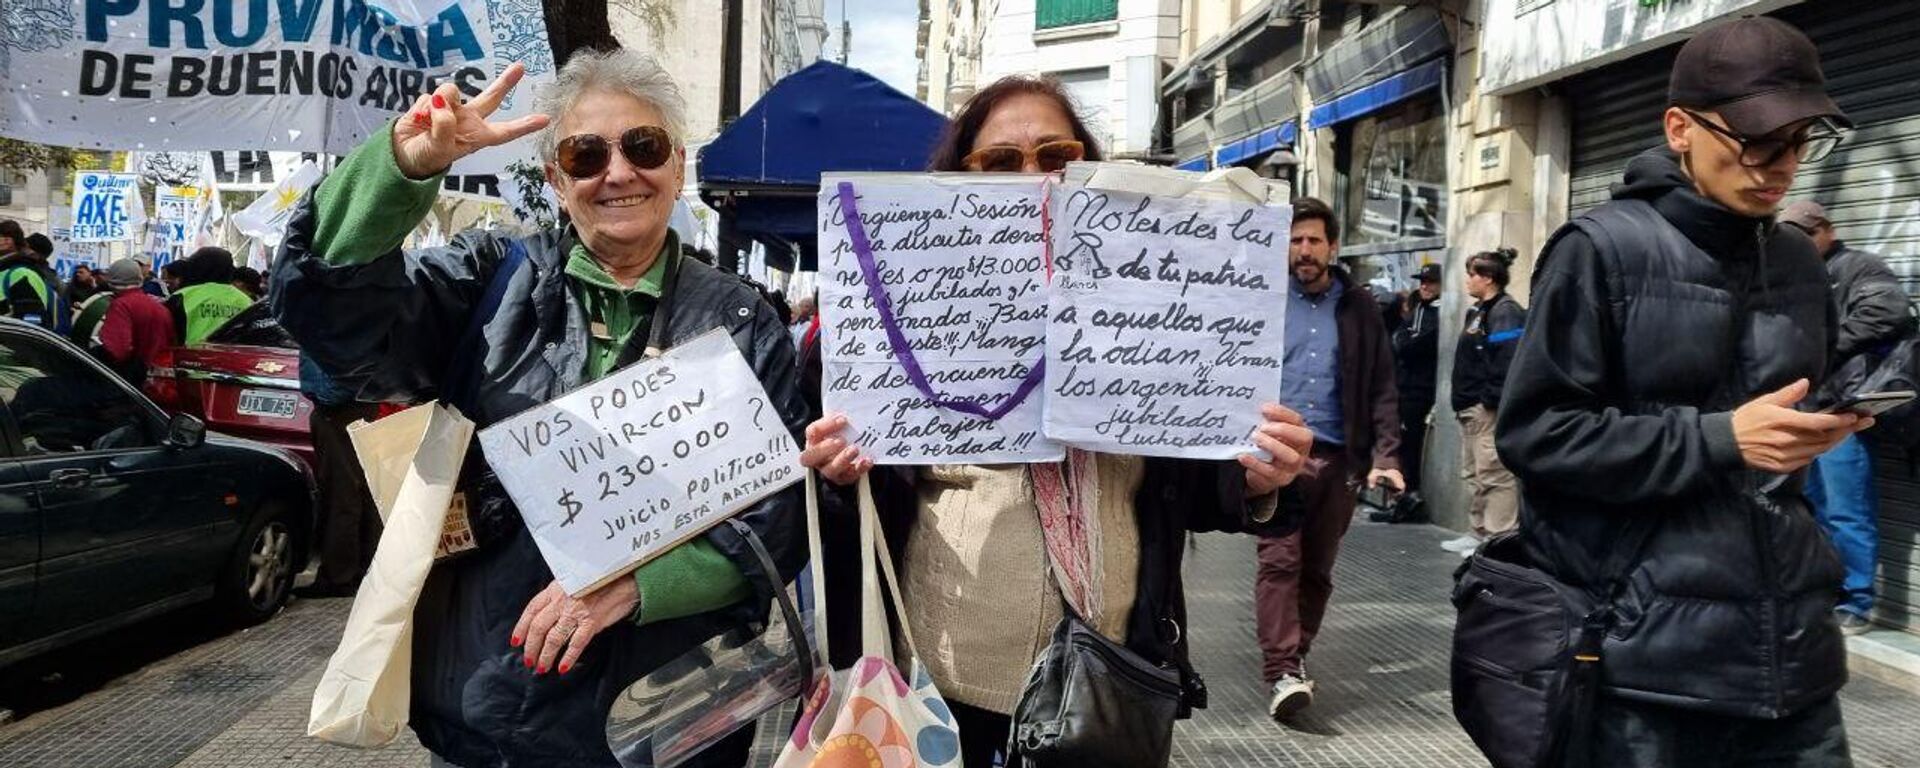 PROVINCIA
DE BUENOS AIRES
LA
AXEL
VOS PODES
VIVIR-CON
$ 230.000 ?
JUICIO POLITICO!!!
NOS ESTÁ MATANDO
¡Vergüenza! Sesión
para discutir
o no $13.000.
a los jubilados y/o
pensionados ¡¡¡Bast
de ajuste!!! ¡Mang
de delincuente
¡gestionen
¡¡¡ trabajen
de verdad!!!
No les des las
llaves de tu patria
a aquellos que
la odian ¡¡¡ Vivan
los argentinos
jubilados
luchadores!
JTX 735